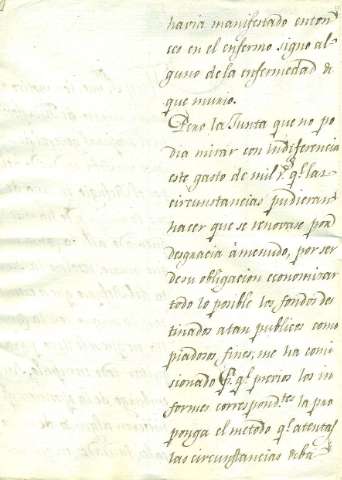 havia manifestado enton
ces en el enfermo signo al-
guno de la enfermedad de
que murio.
Pero la Junta que no po
dia mirar con indiferencia
este gasto de mil r.s q.e las
circunstancias pudieran
hacer que se renovase por
desgracia à menudo, por ser
de su obligacion economizar
todo lo posible los fondos des
tinados a tan publicos como
piadosos fines, me ha comi
sionado p.a q.e previos los in
formes correspond.tes la pro
ponga el metodo q.e atentas
las circunstancias deba